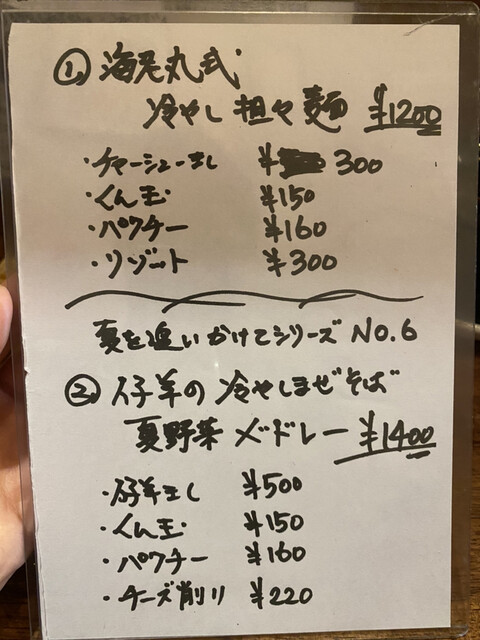 ① 海老丸式
冷やし担々麺 ¥1200
・チャーシューまし ¥ 300
・くん玉 ¥150
・パクチー ¥160
・リゾート ¥300
夏を追いかけてシリーズ NO.6
② 仔羊の冷やしまぜそば
夏野菜メドレー ¥1400
・仔羊まし ¥500
・くん玉 ¥150
・パクチー ¥160
・チーズ削り ¥220